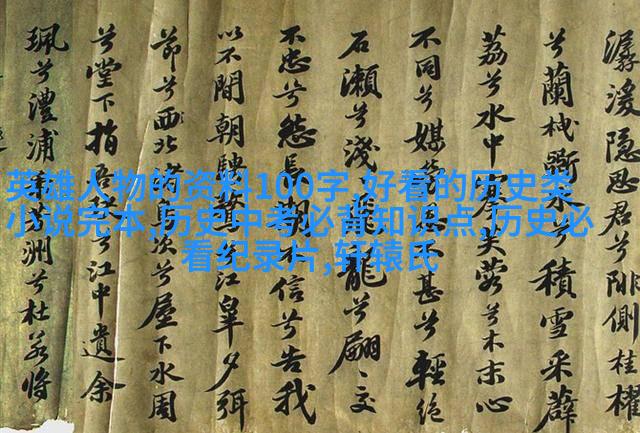 英雄人物的资料100字,好看的历史类
小说完本,历史中考必背知识点,历史必
看纪录片,轩辕氏
潺湲隱思兮陫側桂櫂
兮蘭枻斲兮積雪采薜
荔兮水中芙蓉兮木末心
不同兮媒甚兮輕絕
石瀨兮淺龍兮翩〻交
不忠兮怨長期不信兮告我
以不閒朝騁騖江皋夕弭
節兮西北次兮屋下水周
兮堂下指兮江中遺余
珮兮澧浦洲兮杜若將